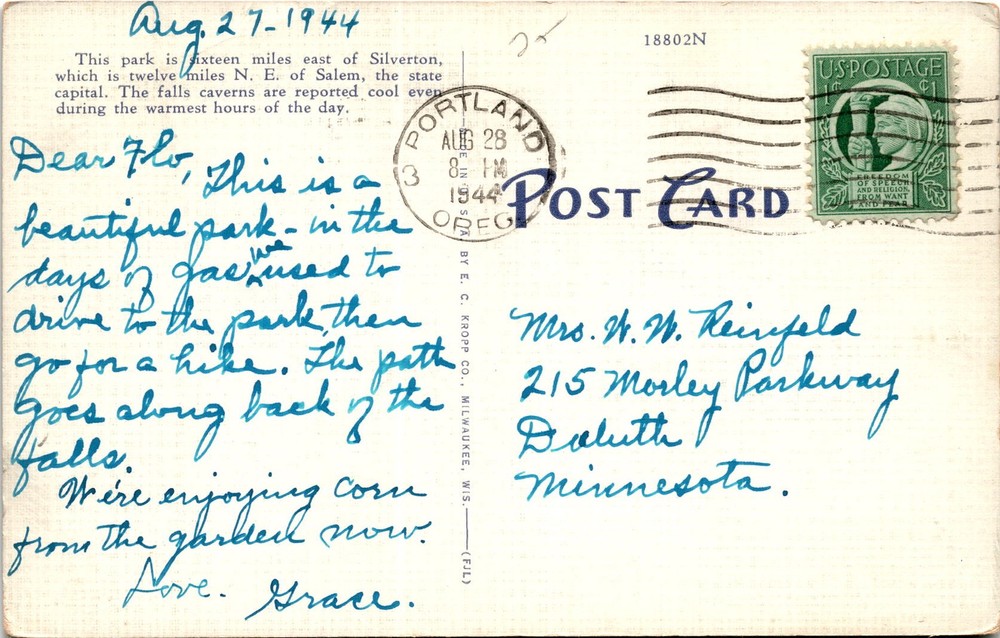 Aug. 27-1944
This park is sixteen miles east of Silverton,
which is twelve miles N. E. of Salem, the state
capital. The falls caverns are reported cool even
during the warmest hours of the day.
Dear Flo,
This is a
beautiful park - in the
days of gas we used to
drive to the park, then
go for a hike. The path
goes along back of the
falls.
We're enjoying corn
from the garden now.
Love.
Grace.
BY E. C. KROPP CO., MILWAUKEE, WIS.
(FJL)
25
18802N
PORTLAND
AUG 28
8 PM
1944
3
OREG.
POST CARD
U·S·POSTAGE
1¢ ¢1
FREEDOM
OF SPEECH
AND RELIGION,
FROM WANT
AND FEAR
Mrs. W. W. Reinfeld
215 Morley Parkway
Duluth
Minnesota.